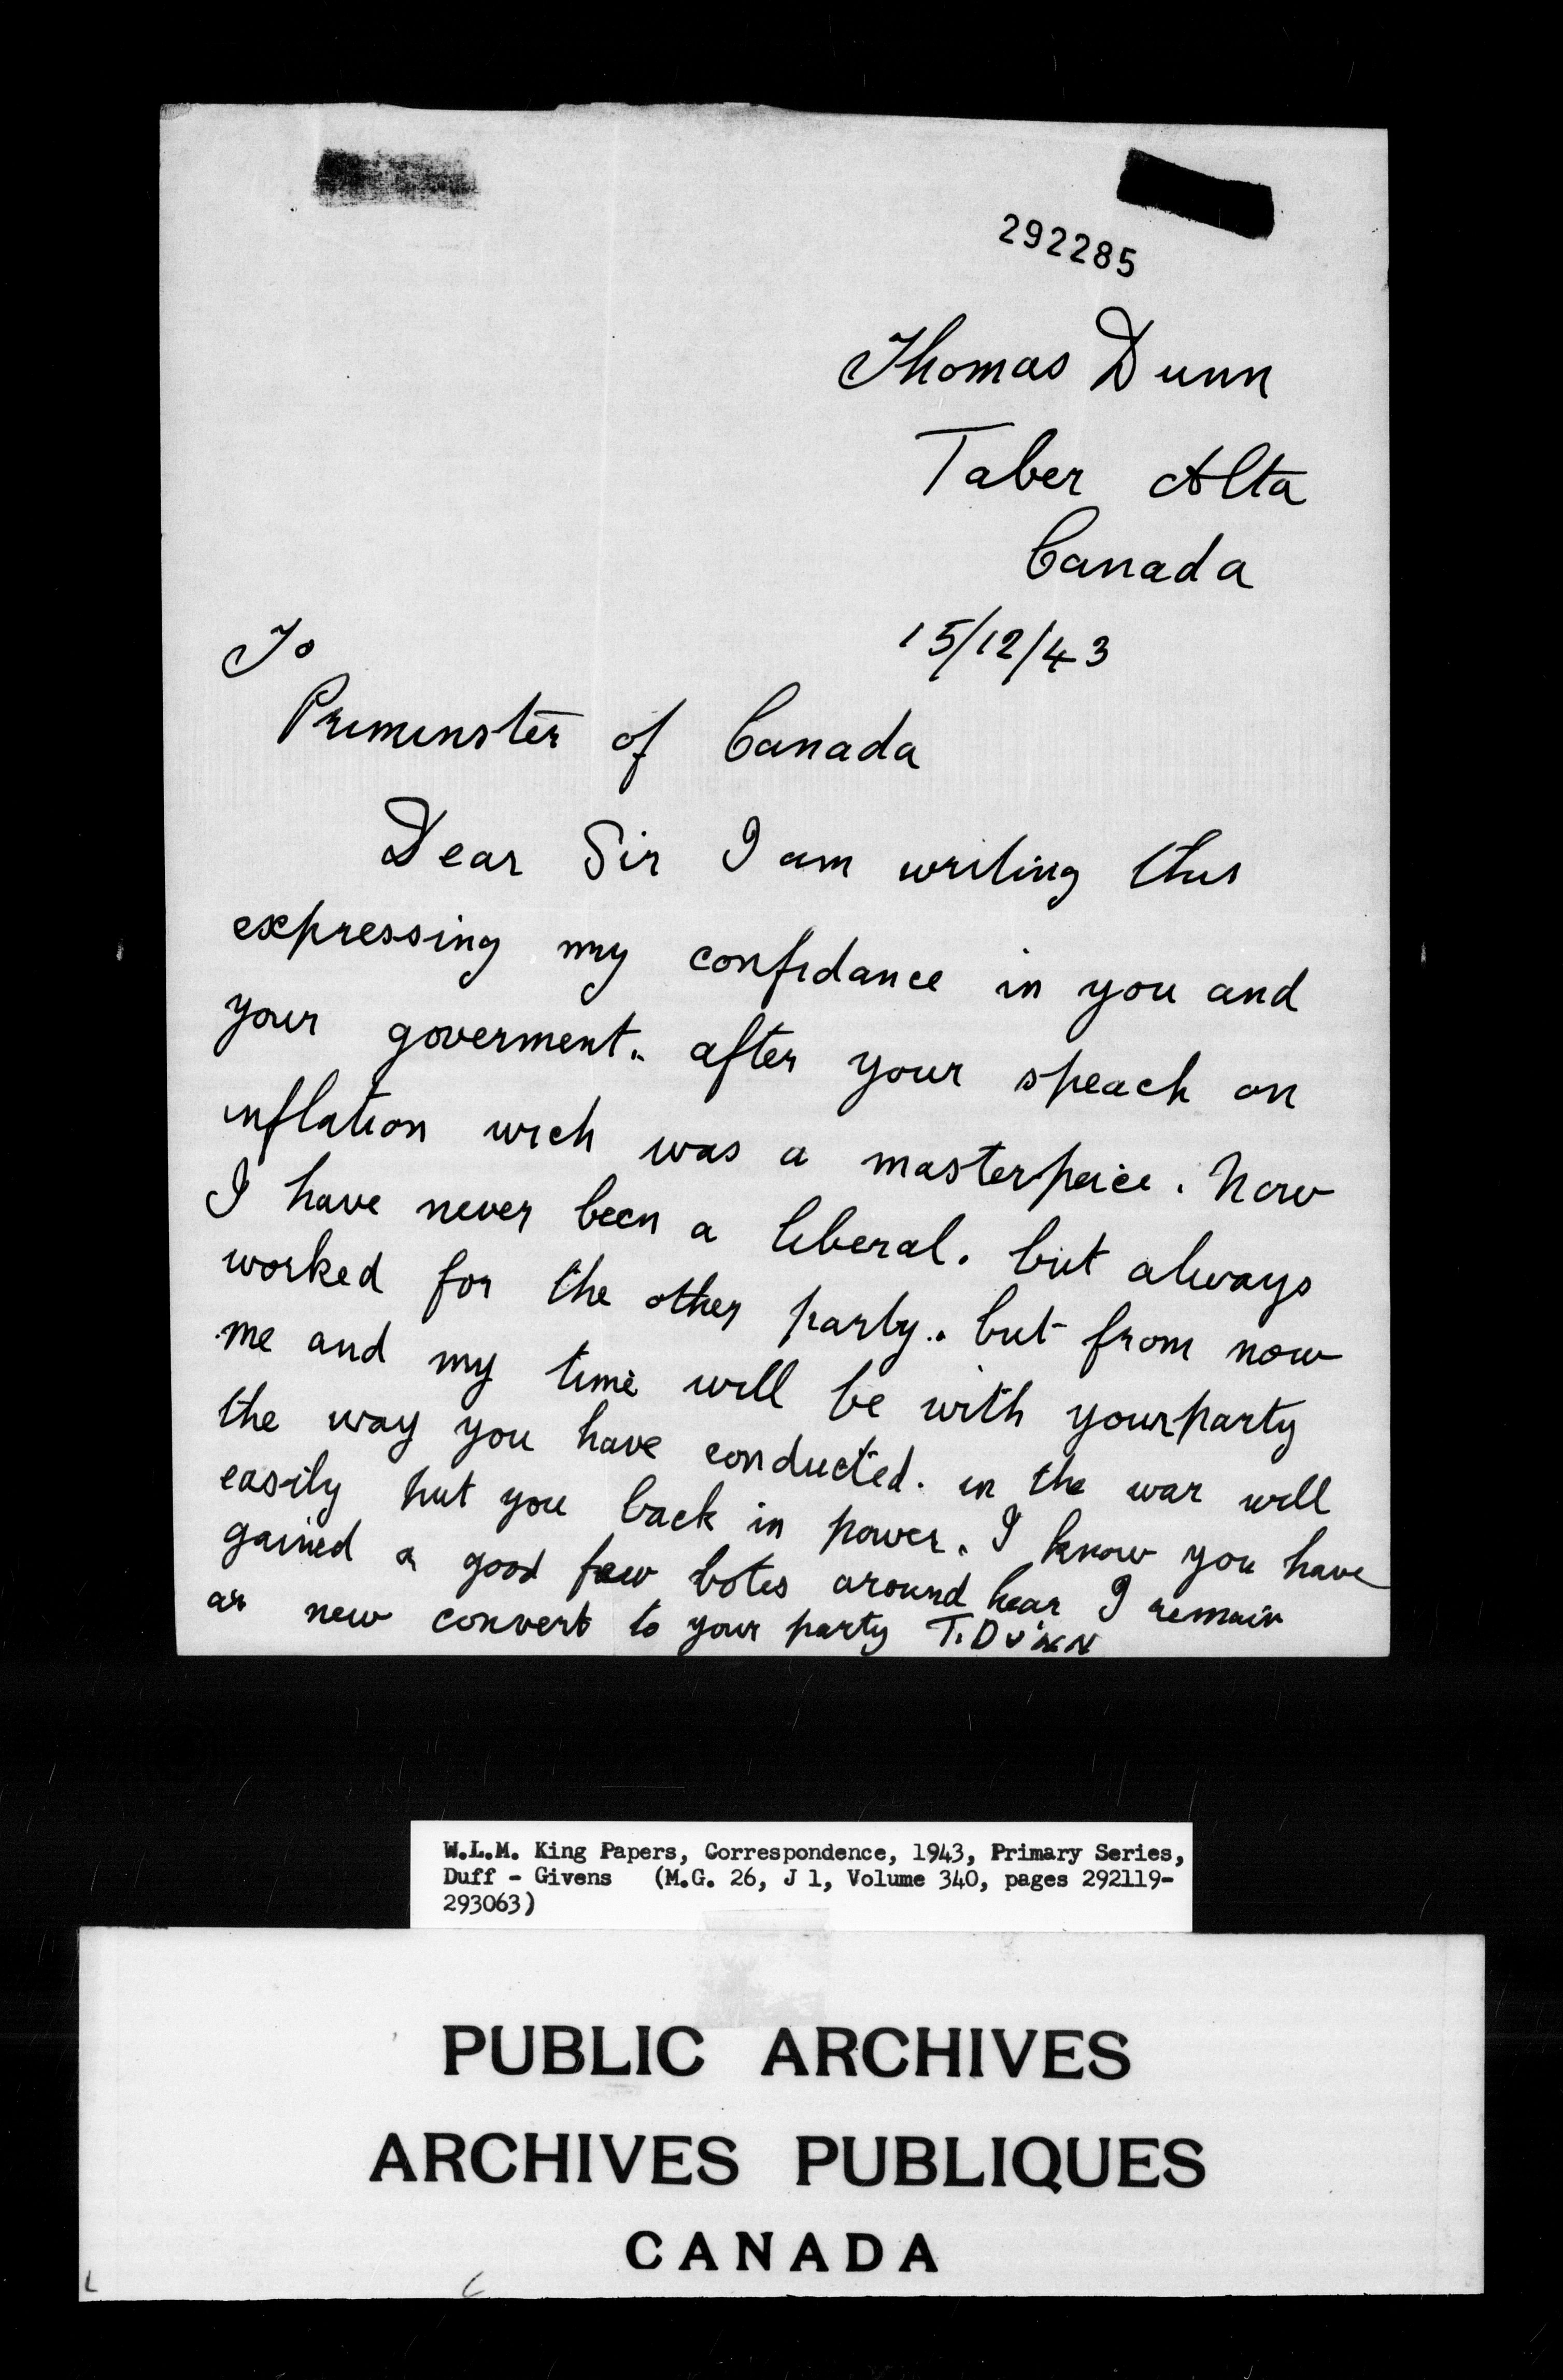 292285
Thomas Dunn
Taber Alta
Canada
15/12/43
To
Priminster of Canada
Dear Sir I am writing this
expressing my confidance in you and
your goverment. after your speach on
inflation wich was a masterpeice. Now
I have never been a liberal. but always
worked for the other party. but from now
me and my time will be with your party
the way you have conducted. in the war will
easily put you back in power. I know you have
gained a good few votes around hear I remain
as new convert to your party T. DUNN
W.L.M. King Papers, Correspondence, 1943, Primary Series,
Duff - Givens (M.G. 26, J 1, Volume 340, pages 292119-
293063)
PUBLIC ARCHIVES
ARCHIVES PUBLIQUES
CANADA